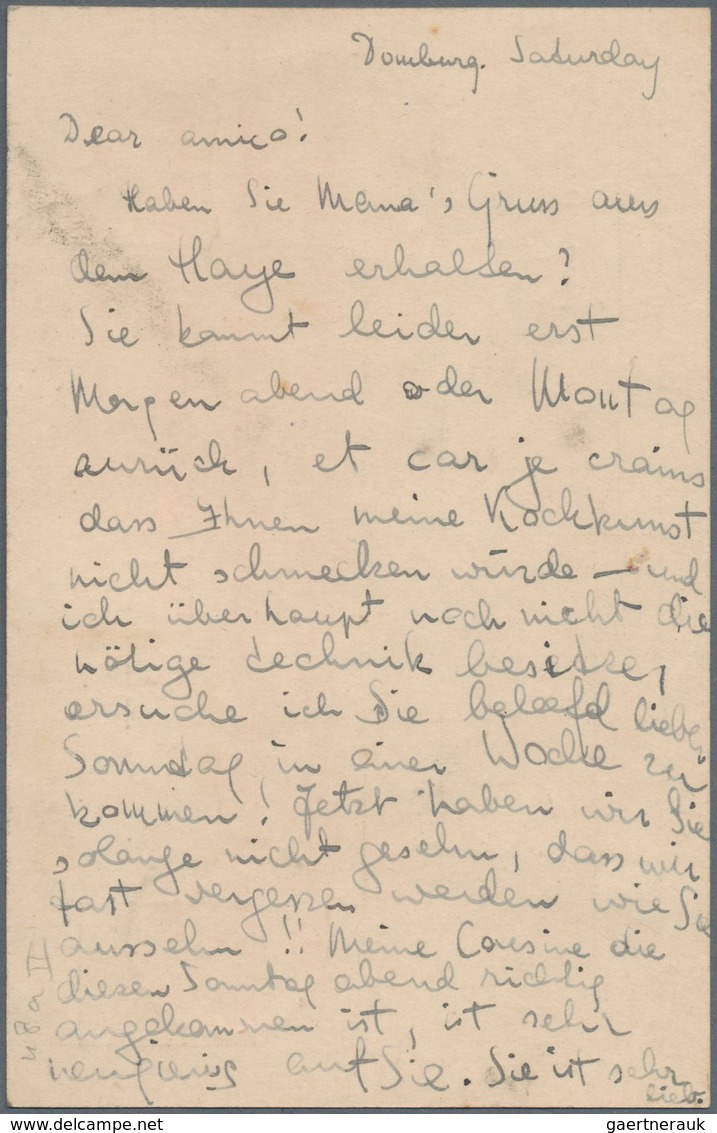 Domburg. Saturday
Dear amico!
Haben Sie Mama's Gruss aus
dem Haye erhalten?
Sie kommt leider erst
Morgen abend oder Montag
zurück, et car je crains
dass Ihnen meine Kochkunst
nicht schmecken würde — und
ich überhaupt noch nicht die
nötige technik besitze,
ersuche ich Sie beleefd lieber
Sonntag in einer Woche zu
kommen! Jetzt haben wir Sie
solange nicht gesehn, dass wir
fast vergessen werden wie Sie
aussehn!! Meine Cousine die
diesen Sonntag abend richtig
angekommen ist, ist sehr
neugierig auf Sie. Sie ist sehr
lieb.
gaertnerauk